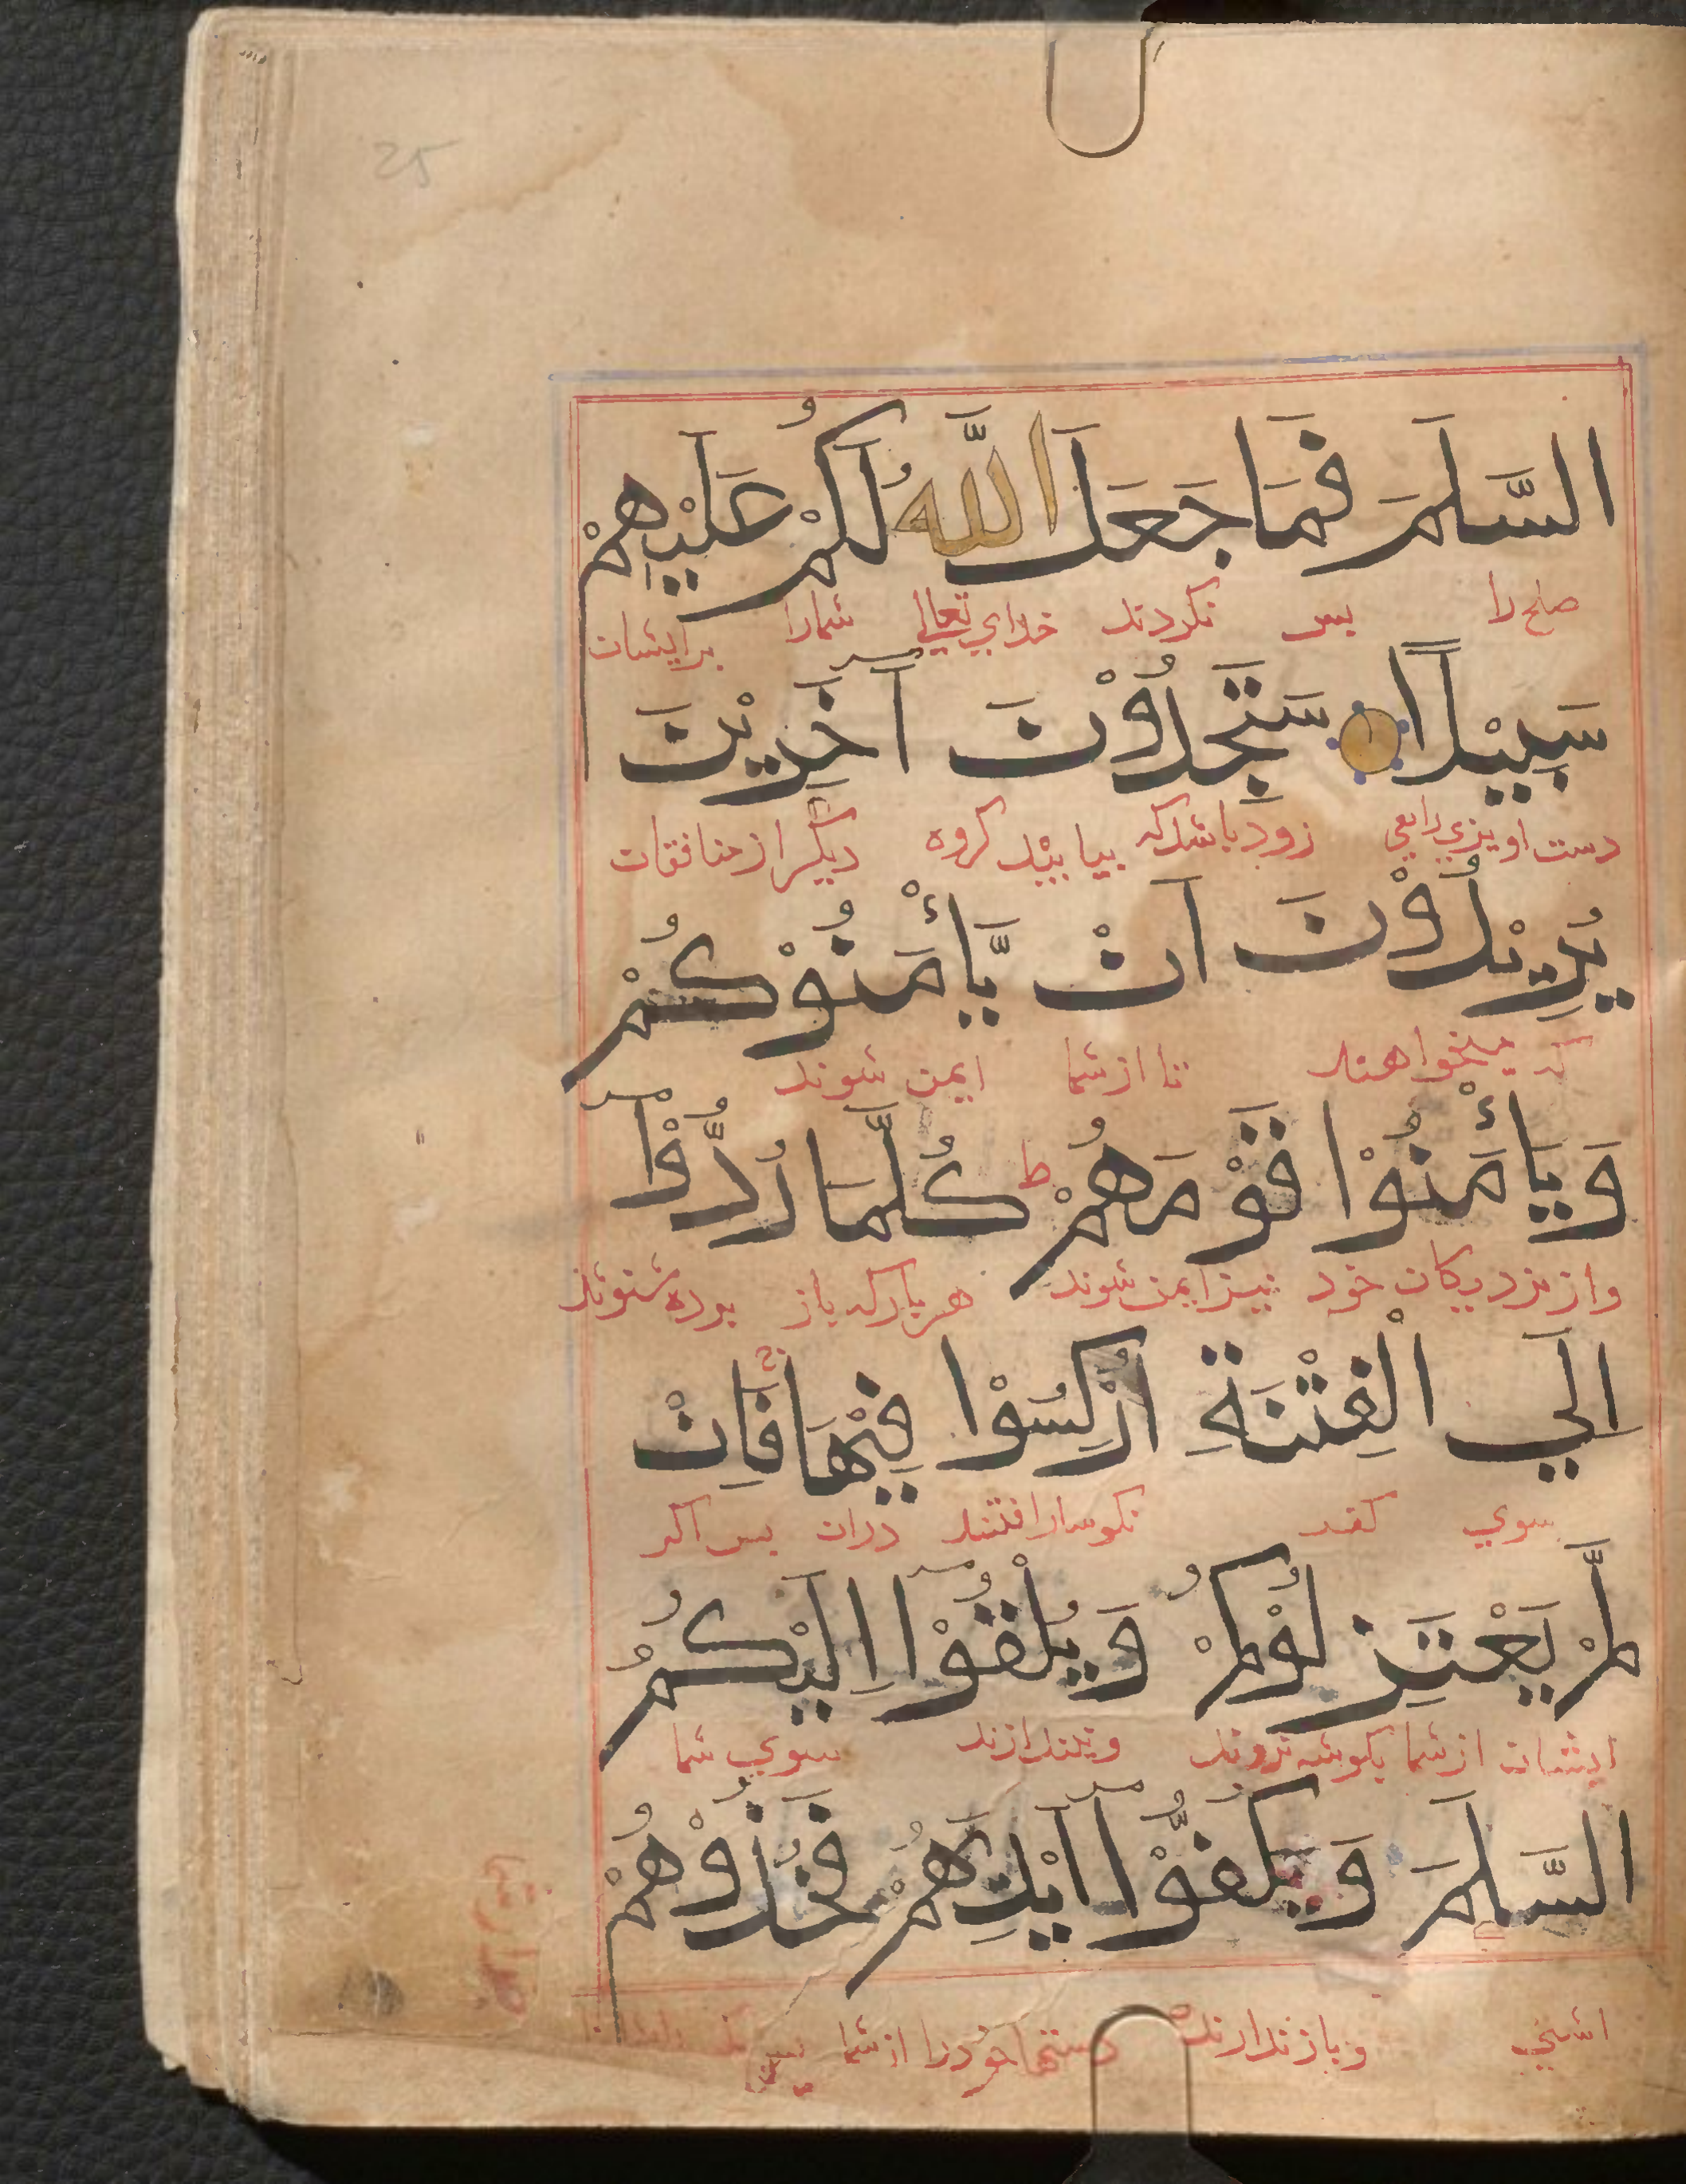 25
السَّلَمَ فَمَا جَعَلَ اللَّهُ لَكُمْ عَلَيْهِمْ
صلح را بس نكردند خداي تعالي شمارا برايشان
سَبِيْلًا سَتَجِدُوْنَ آخَرِيْنَ
دست اويزي رايعي زود باشد كه بيابيد كروه ديكر از منافقان
يُرِيْدُوْنَ اَنْ يَّأْمَنُوْكُمْ
كه ميخواهند تا از شما ايمن شوند
وَيَأْمَنُوْا قَوْمَهُمْ ط كُلَّمَا رُدُّوْٓا
واز نزديكان خود نيز ايمن شوند هر بار كه باز برده شوند
اِلَي الْفِتْنَةِ اُرْكِسُوْا فِيْهَا فَاِنْ
سوي كفر نكوسار افتند دران بس اكر
لَّمْ يَعْتَزِلُوْكُمْ وَيُلْقُوْٓا اِلَيْكُمُ
ايشان از شما بكوشه نروند ونيندازند سوي شما
السَّلَمَ وَيَكُفُّوْٓا اَيْدِيَهُمْ فَخُذُوْهُمْ
اشتي وباز ندارند دستها خود را از شما بس